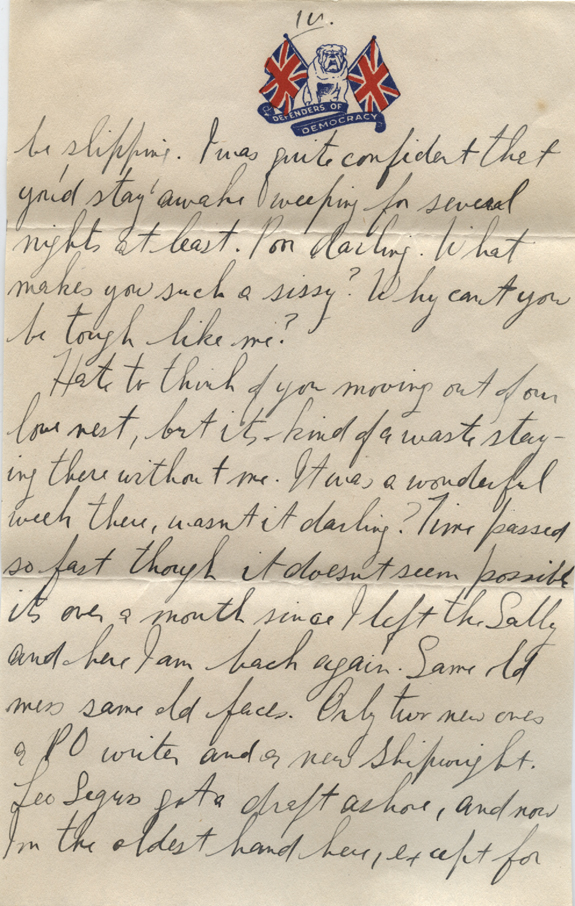 IV.
DEFENDERS OF
DEMOCRACY
be slipping. I was quite confident that
you'd stay awake weeping for several
nights at least. Poor darling. What
makes you such a sissy? Why can't you
be tough like me?
Hate to think of you moving out of our
love nest, but its kind of a waste stay-
ing there without me. It was a wonderful
week there, wasnt it darling? Time passed
so fast though it doesnt seem possible
its over a month since I left the Sally
and here I am back again. Same old
mess same old faces. Only two new ones
a PO writer and a new Shipwright.
Leo got a draft ashore, and now
Im the oldest hand here, except for